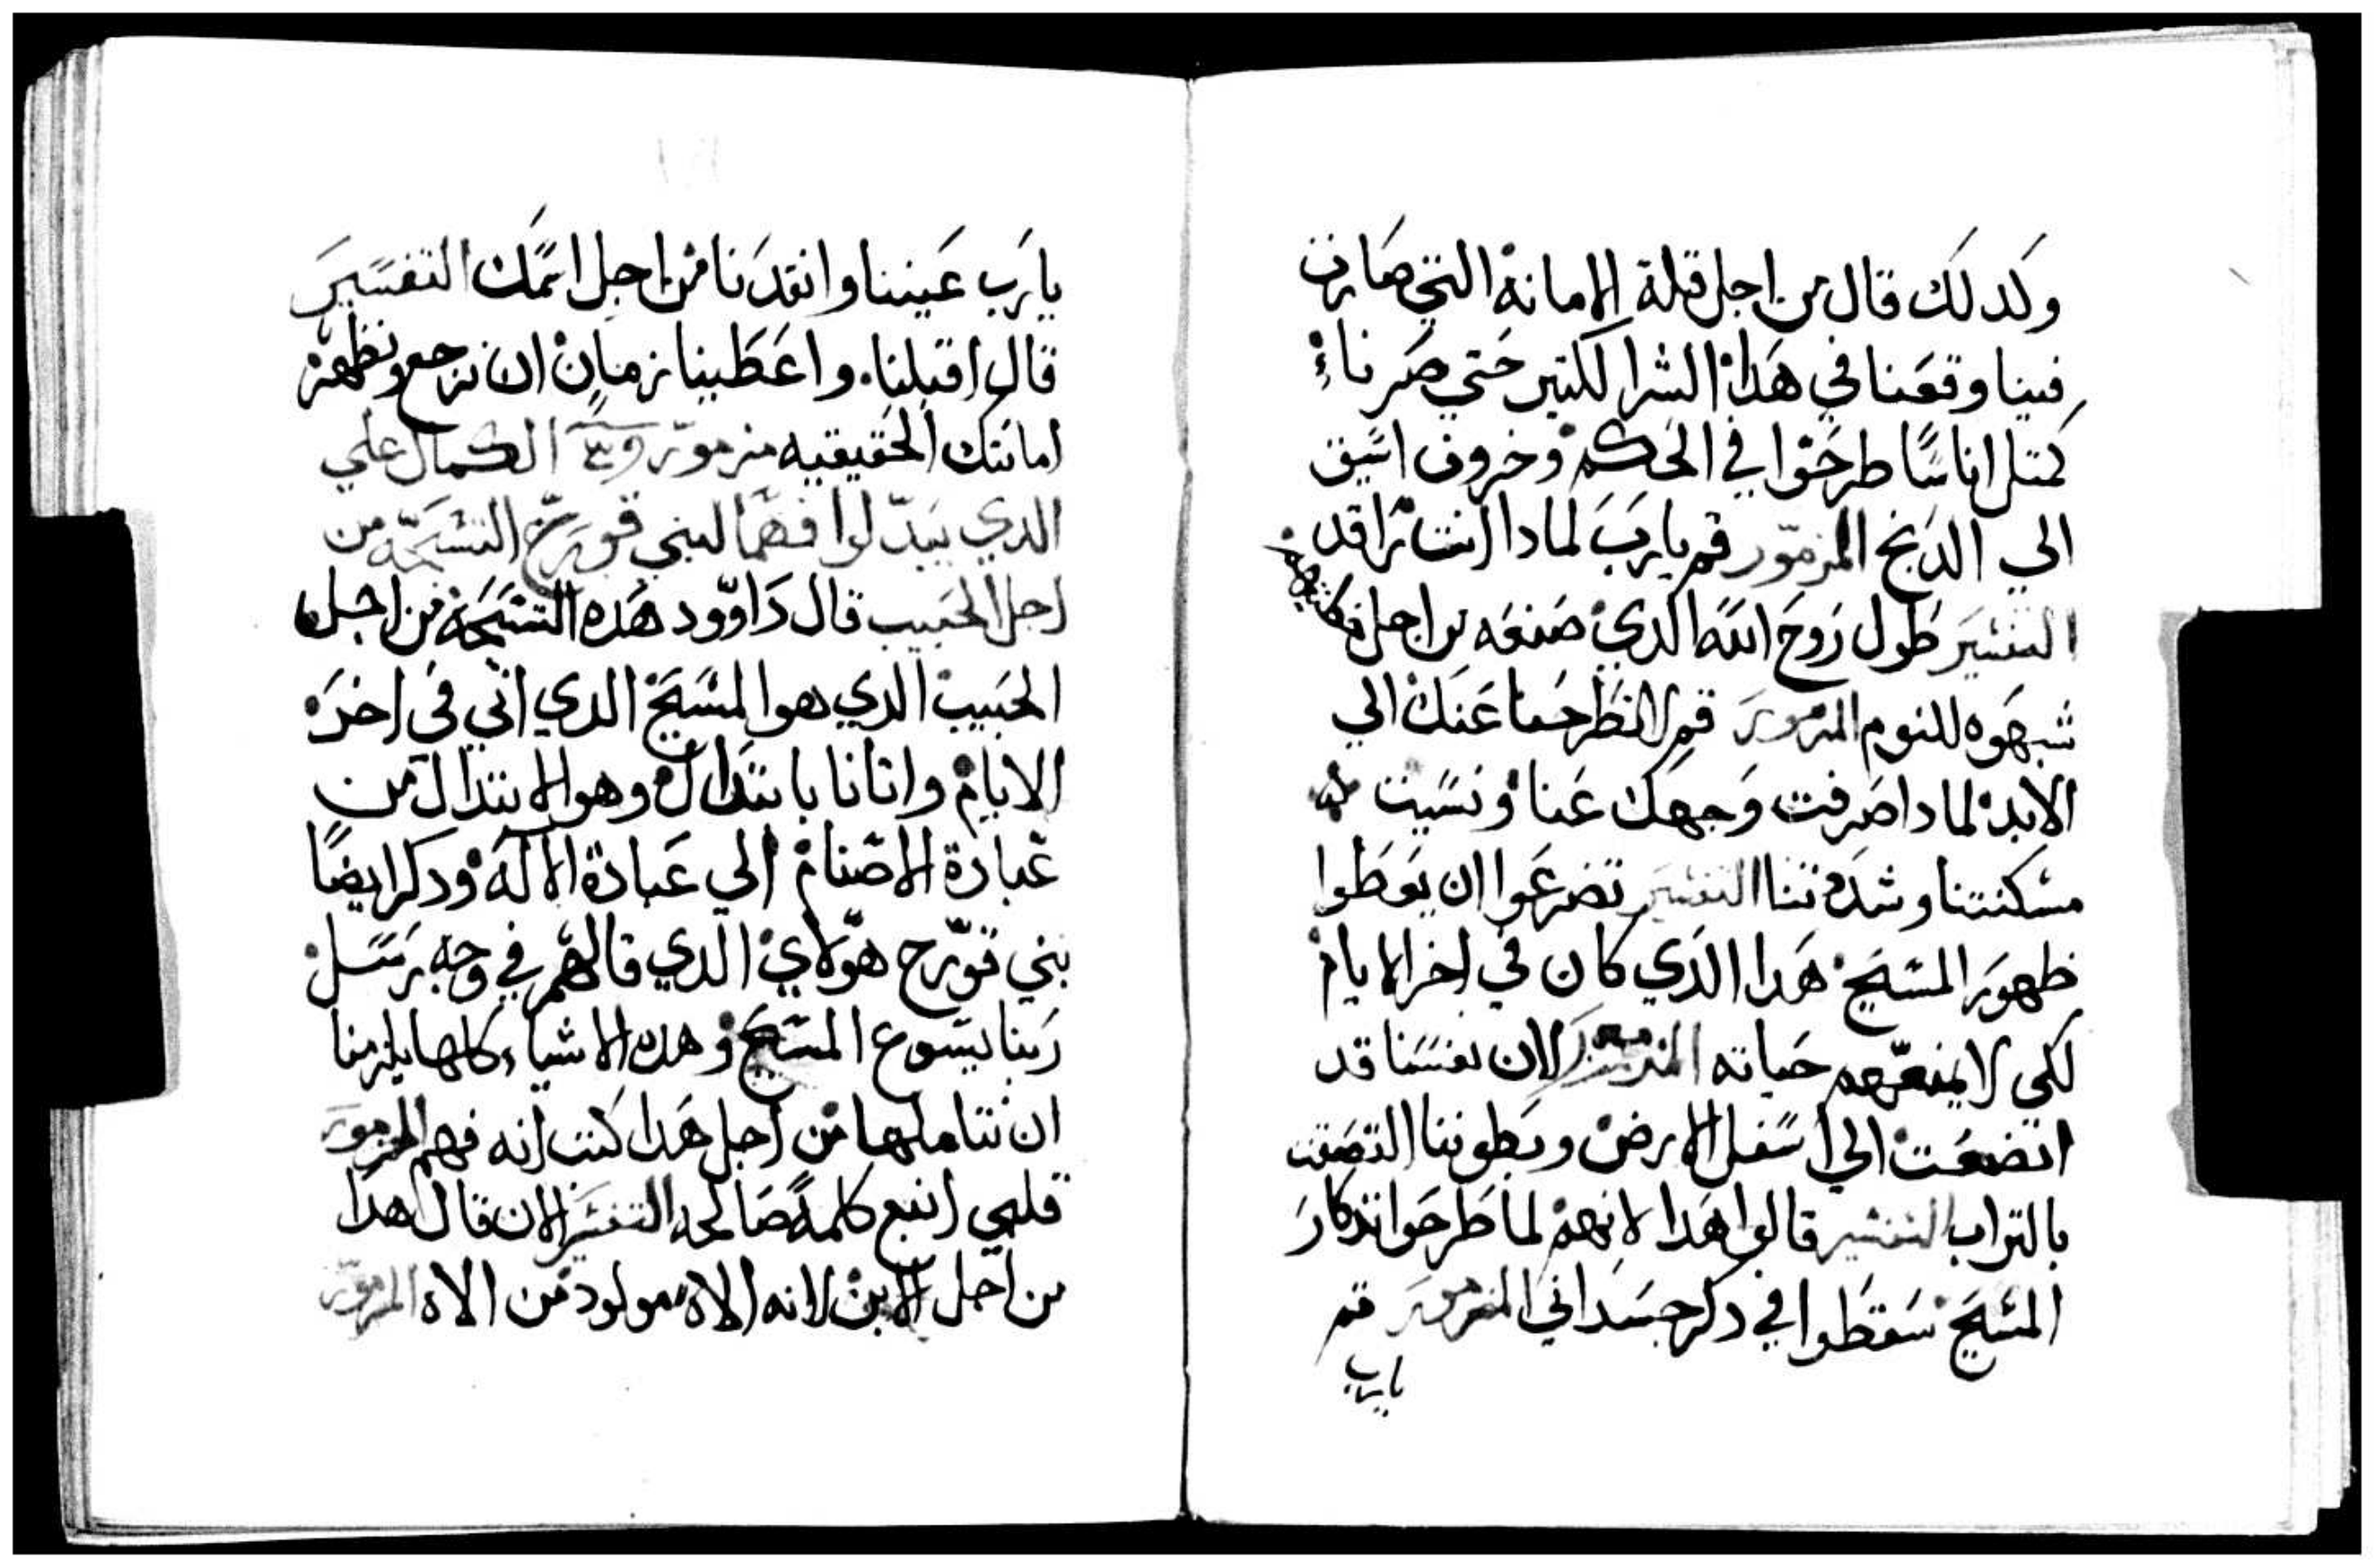 وكدلك قال من اجل قلة الامانة التي صارت
فينا وقعنا في هدا الشر الكتير حتي صرنا
كمتل اناسًا طرحوا في الحكم وخروف اسيق
الي الدبح المزمور قم يارب لمادا انت راقد
التفسير طول روح الله الدي صنعه من اجل
شبهوه للنوم المزمور قم لا تطرحنا عنك الي
الابد لمادا صرفت وجهك عنا ونسيت
مسكنتنا وشدتنا التفسير تضرعوا ان يعطوا
ظهور المسيح هدا الدي كان في اخر الايام
لكي لا يمنعهم حياته المزمور لان نفسنا قد
اتضعت الي اسفل الارض وبطوننا التصقت
بالتراب التفسير قالوا هدا لانهم لما طرحوا تدكار
المسيح سقطوا في دكر جسداني المزمور قم
يارب
يارب عيننا وانقدنا من اجل اسمك التفسير
قال اقبلنا. واعطينا زمان ان نرجع ونظهر
امانتك الحقيقيه مزمور الكمال علي
الدي يبدلوا فهمًا لبني قورح التسبحه من
اجل الحبيب قال داوود هده التسبحة من اجل
الحبيب الدي هو المسيح الدي اتي في اخر
الايام واتانا بابتدال وهو الابتدال من
عبادة الاصنام الي عبادة الاله ودكر ايضًا
بني قورح هولاي الدي قالهم في وجه رسل
ربنا يسوع المسيح وهده الاشياء كلها يلزمنا
ان نتاملها من اجل هدا كتب انه فهم المزمور
قلبي انبع كلمة صالحه التفسير الان قال هدا
من اجل الابن لانه الاه مولود من الاه المزمور